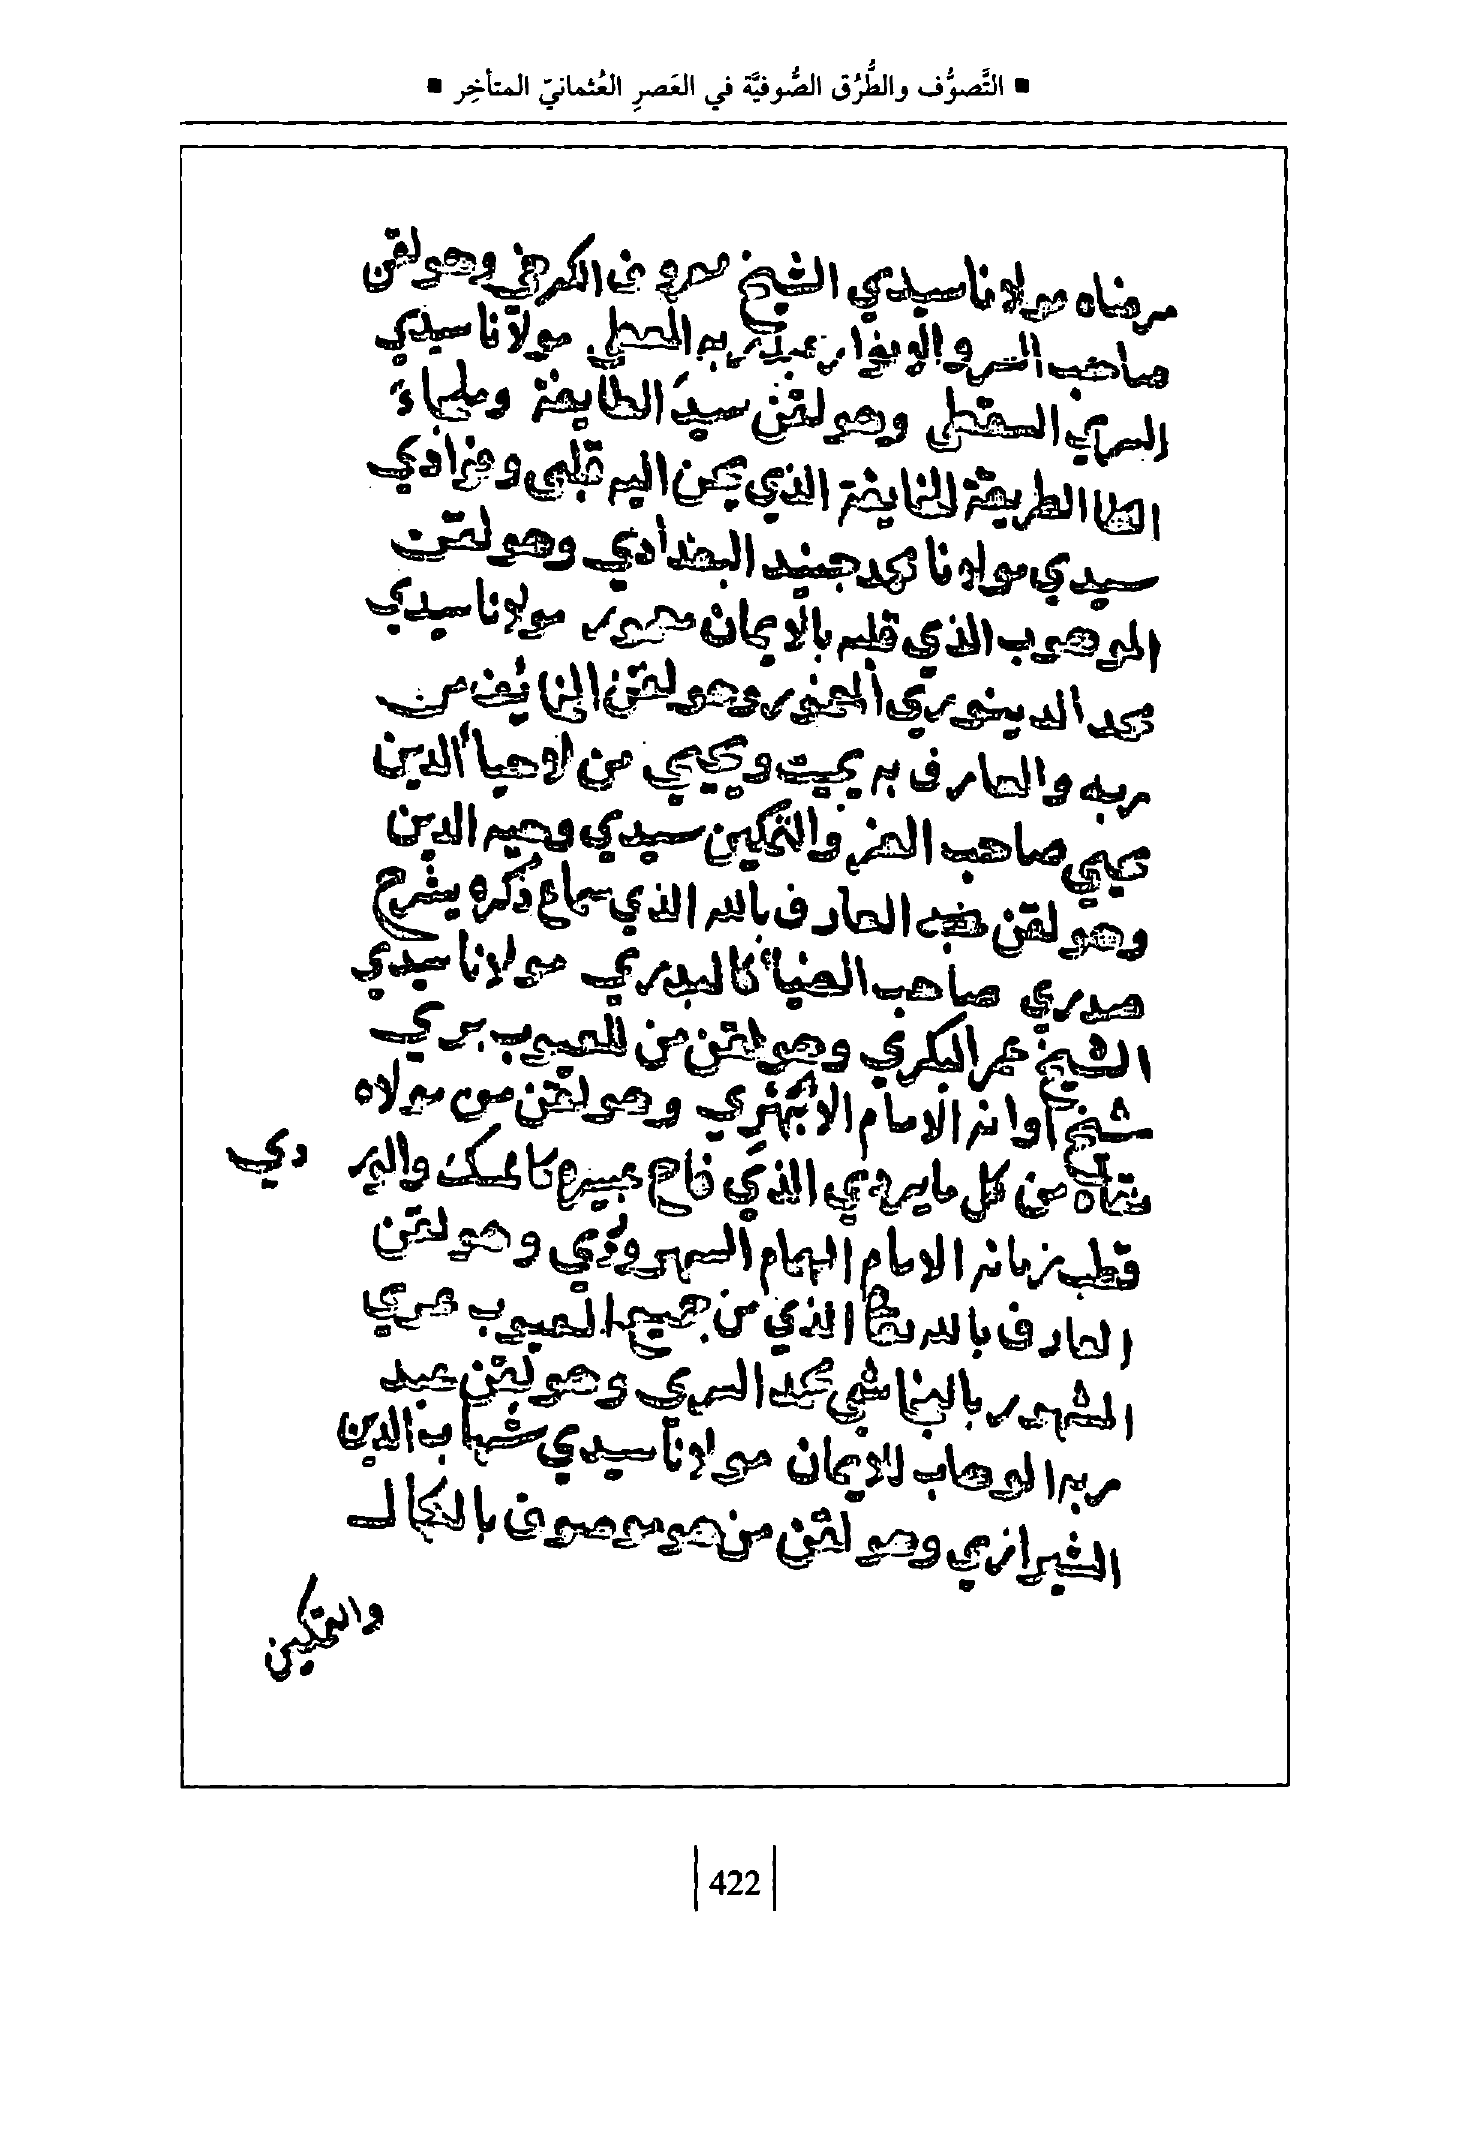 ■ التَّصوُّف والطُّرُق الصُّوفيَّة في العَصرِ العُثمانيّ المتأخِر ■
مرضاه مولانا سيدي الشيخ معروف الكرخي وهو لقن
صاحب السر والانوار عبد ربه المعطي مولانا سيدي
السري السقطي وهو لقن سيد الطايفة وملجاء
الطريقة الذي يحن اليه قلبي وفؤادي
سيدي مولانا محمد جنيد البغدادي وهو لقن
الموهوب الذي قلبه بالايمان معمور مولانا سيدي
محمد الدينوري وهو لقن الخايف من
ربه والعارف به يميت ويحيي من لاحيا الدين
محيي صاحب العز والتمكين سيدي وحيه الدين
وهو لقن العارف بالله الذي سماع ذكره يشرح
صدري صاحب الضيا كالبدري مولانا سيدي
الشيخ عمر البكري وهو لقن من للعيوب بري
شيخ أوانه الامام الابهري وهو لقن من مولاه
نقاه من كل ما يردي الذي فاح عبيره كالمسك والور دي
قطب زمانه الامام الهمام السهروردي وهو لقن
العارف بالله الذي من جميع العيوب عري
المشهور بالنجاشي محمد السري وهو لقن عبد
ربه الوهاب للايمان مولانا سيدي شهاب الدين
الشيرازي وهو لقن من هو موصوف بالكمال
والتمكين
422